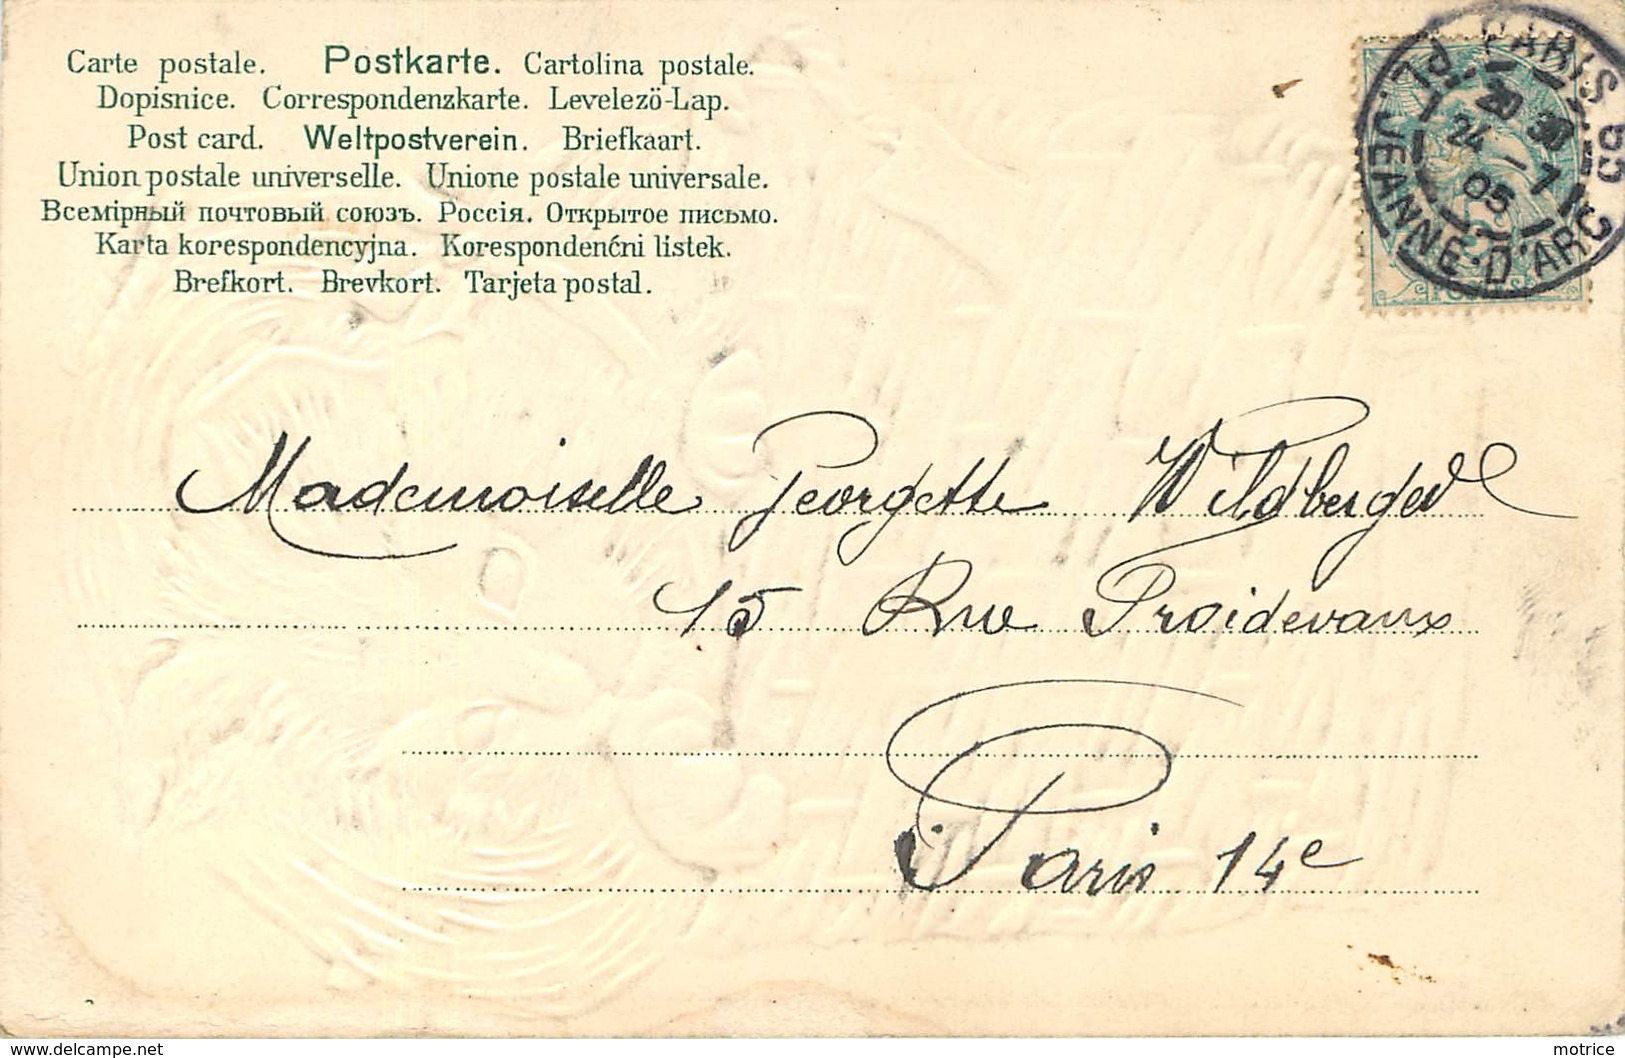 Carte postale. Postkarte. Cartolina postale.
Dopisnice. Correspondenzkarte. Levelezö-Lap.
Post card. Weltpostverein. Briefkaart.
Union postale universelle. Unione postale universale.
Всемірный почтовый союзъ. Россія. Открытое письмо.
Karta korespondencyjna. Korespondenćni listek.
Brefkort. Brevkort. Tarjeta postal.
PARIS
PL. JEANNE-D'ARC
20 30
24 - 7
05
Mademoiselle Georgette Wildberger
15 Rue Froidevaux
Paris 14e
www.delcampe.net
motrice